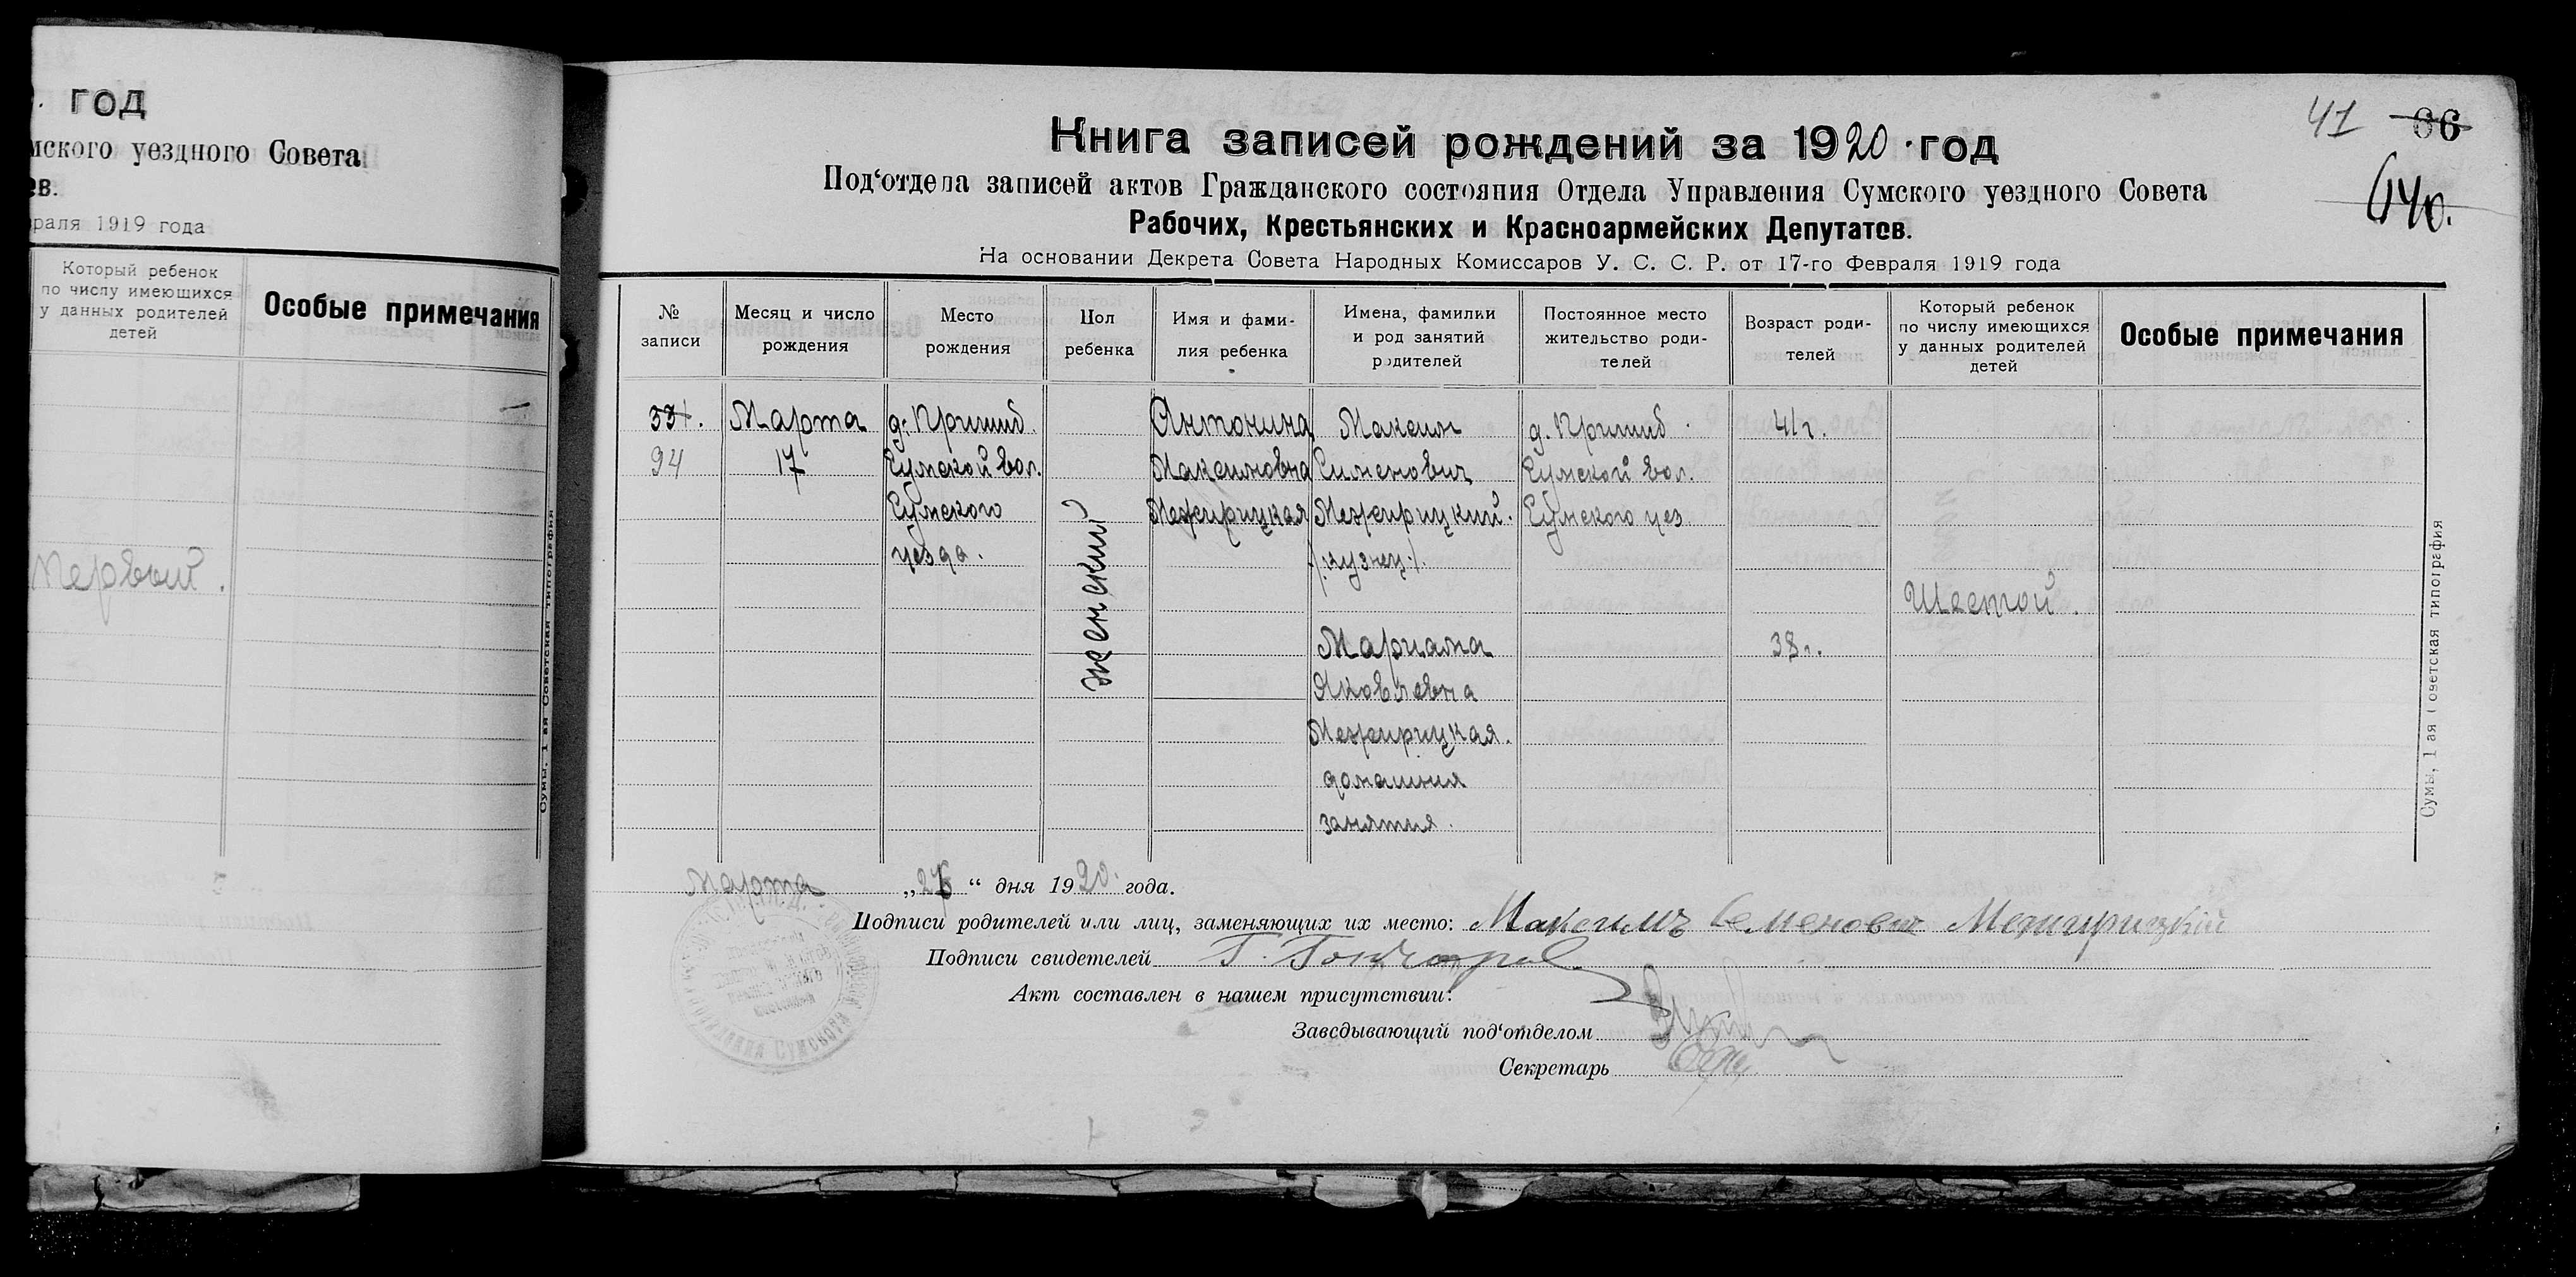 год
мского уездного Совета
ев.
враля 1919 года
Который ребенок
по числу имеющихся
у данных родителей
детей
Особые примечания
Первый.
Сумы, 1-ая Советская типография
41 66
Книга записей рождений за 1920 год
Под‘отдела записей актов Гражданского состояния Отдела Управления Сумского уездного Совета
Рабочих, Крестьянских и Красноармейских Депутатов.
На основании Декрета Совета Народных Комиссаров У. С. С. Р. от 17-го Февраля 1919 года
№
записи
Месяц и число
рождения
Место
рождения
Пол
ребенка
Имя и фами-
лия ребенка
Имена, фамилии
и род занятий
родителей
Постоянное место
жительство роди-
телей
Возраст роди-
телей
Который ребенок
по числу имеющихся
у данных родителей
детей
Особые примечания
94
Марта
17
д. Пришиб.
Сумской вол.
Сумского
уезда.
женский
Антонина
Максимовна
Межирицкая
Максим
Сименович
Межирицкий.
(кузнец).
Мариама
Яковлевна
Межирицкая.
домашния
занятия.
д. Пришиб.
Сумской вол.
Сумского уез.
41 г.
38 г.
Шестой.
Сумы, 1 ая Советская типография
Марта „26“ дня 1920. года.
Подписи родителей или лиц, заменяющих их место: Максимъ Семенович Межирицкій
Подписи свидетелей Г. Гончаров
Акт составлен в нашем присутствии:
Заведывающий под‘отделом
Секретарь